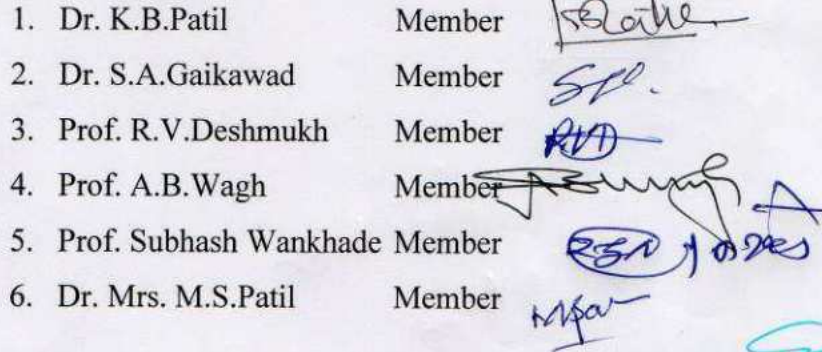 1. Dr. K.B.Patil Member
2. Dr. S.A.Gaikawad Member
3. Prof. R.V.Deshmukh Member
4. Prof. A.B.Wagh Member
5. Prof. Subhash Wankhade Member
6. Dr. Mrs. M.S.Patil Member